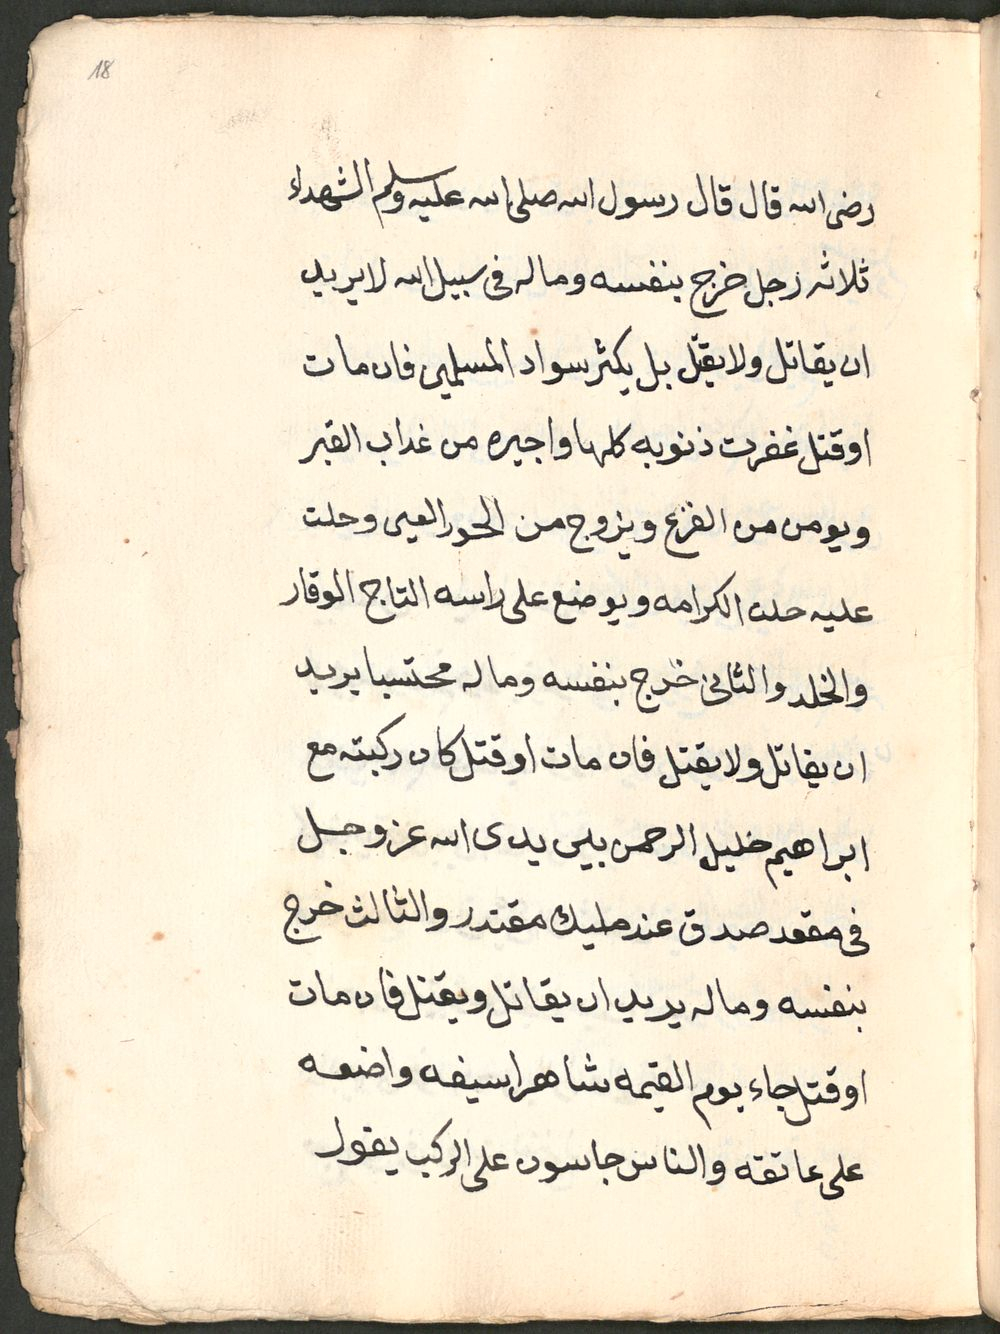 18
رضى الله قال قال رسول الله صلى الله عليه وسلم الشهداء
ثلاثه رجل خرج بنفسه وماله فى سبيل الله لا يريد
ان يقاتل ولا يقتل بل يكثر سواد المسلمين فان مات
او قتل غفرت ذنوبه كلها واجيره من غداب القبر
ويومن من الفزع ويزوج من الحور العين وحلت
عليه حلت الكرامه ويوضع على راسه التاج الوقار
والخلد والثانى خرج بنفسه وماله محتسبا يريد
ان يقاتل ولا يقتل فان مات او قتل كان ركبته مع
ابراهيم خليل الرحمن بين يدى الله عز وجل
فى مقعد صدق عند مليك مقتدر والثالث خرج
بنفسه وماله يريد ان يقاتل ويقتل فان مات
او قتل جاء يوم القيمه شاهرا سيفه واضعه
على عاتقه والناس جاسون على الركب يقول